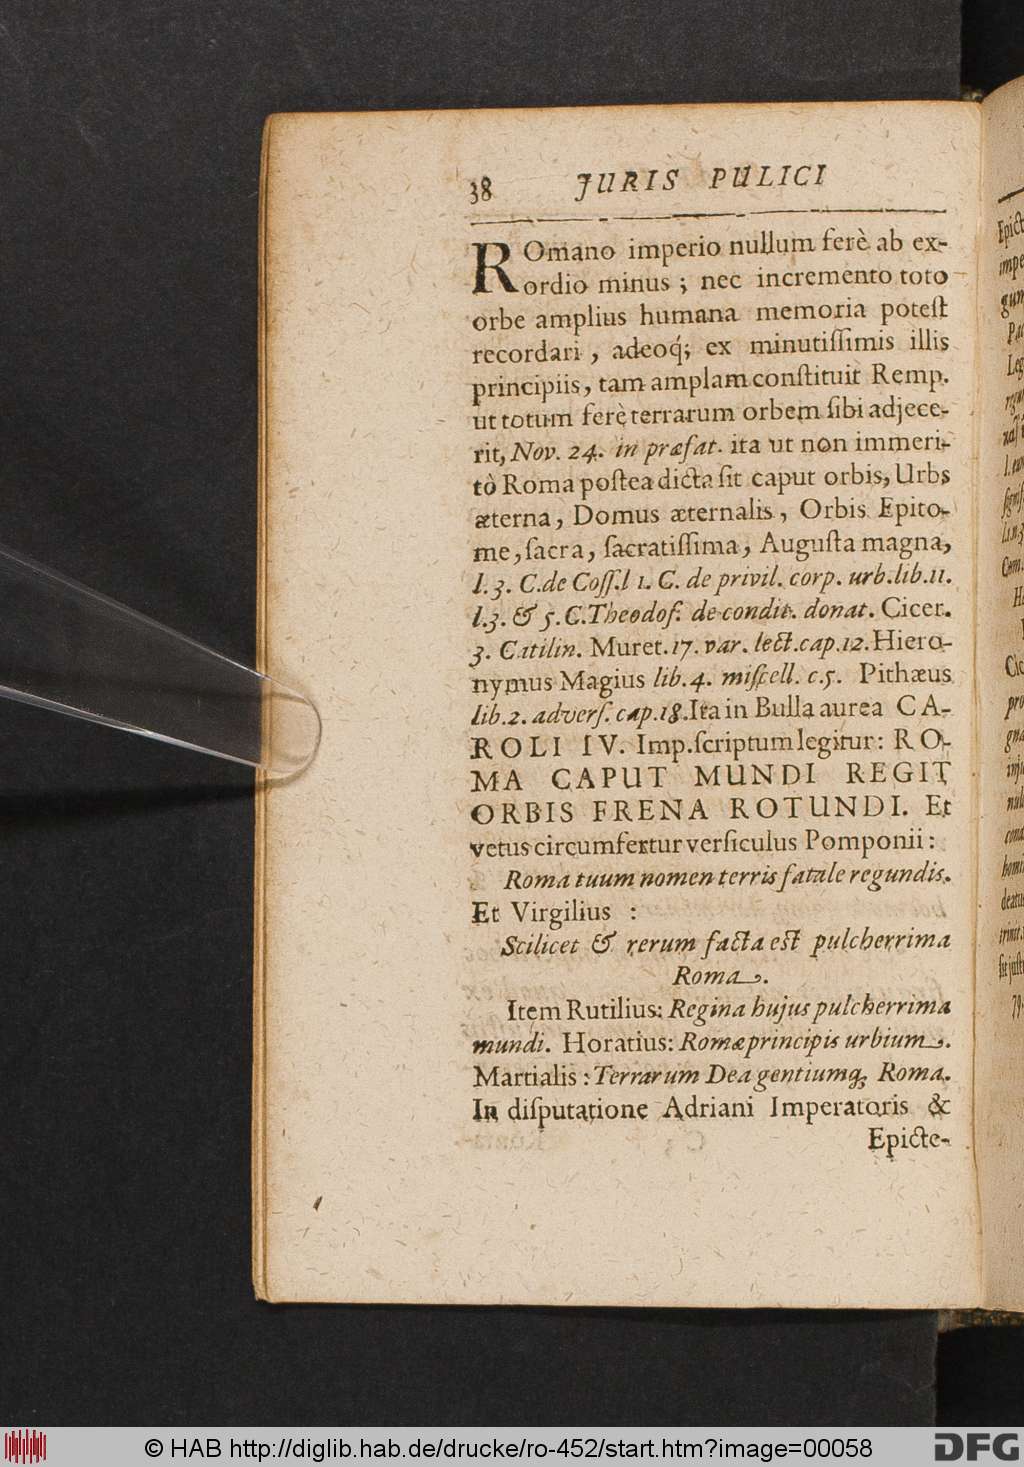 38 JURIS PULICI
ROmano imperio nullum ferè ab ex-
ordio minus ; nec incremento toto
orbe amplius humana memoria poteſt
recordari , adeoq́; ex minutiſſimis illis
principiis, tam amplam conſtituit Remp.
ut totum ferè terrarum orbem ſibi adjece-
rit, Nov. 24. in præfat. ita ut non immeri-
tò Roma poſtea dicta ſit caput orbis, Urbs
æterna, Domus æternalis, Orbis Epito-
me, ſacra, ſacratiſſima, Auguſta magna,
l. 3. C. de Coſſ. l 1. C. de privil. corp. urb. lib. 11.
l. 3. & 5. C. Theodoſ. de condit. donat. Cicer.
3. Catilin. Muret. 17. var. lect. cap. 12. Hiero-
nymus Magius lib. 4. miſcell. c. 5. Pithæus
lib. 2. adverſ. cap. 18. Ita in Bulla aurea CA-
ROLI IV. Imp. ſcriptum legitur: RO-
MA CAPUT MUNDI REGIT
ORBIS FRENA ROTUNDI. Et
vetus circumfertur verſiculus Pomponii :
Roma tuum nomen terris fatale regundis.
Et Virgilius :
Scilicet & rerum facta eſt pulcherrima
Roma.
Item Rutilius: Regina hujus pulcherrima
mundi. Horatius: Romæ principis urbium.
Martialis : Terrarum Dea gentiumq; Roma.
In diſputatione Adriani Imperatoris &
Epicte-
© HAB http://diglib.hab.de/drucke/ro-452/start.htm?image=00058
DFG